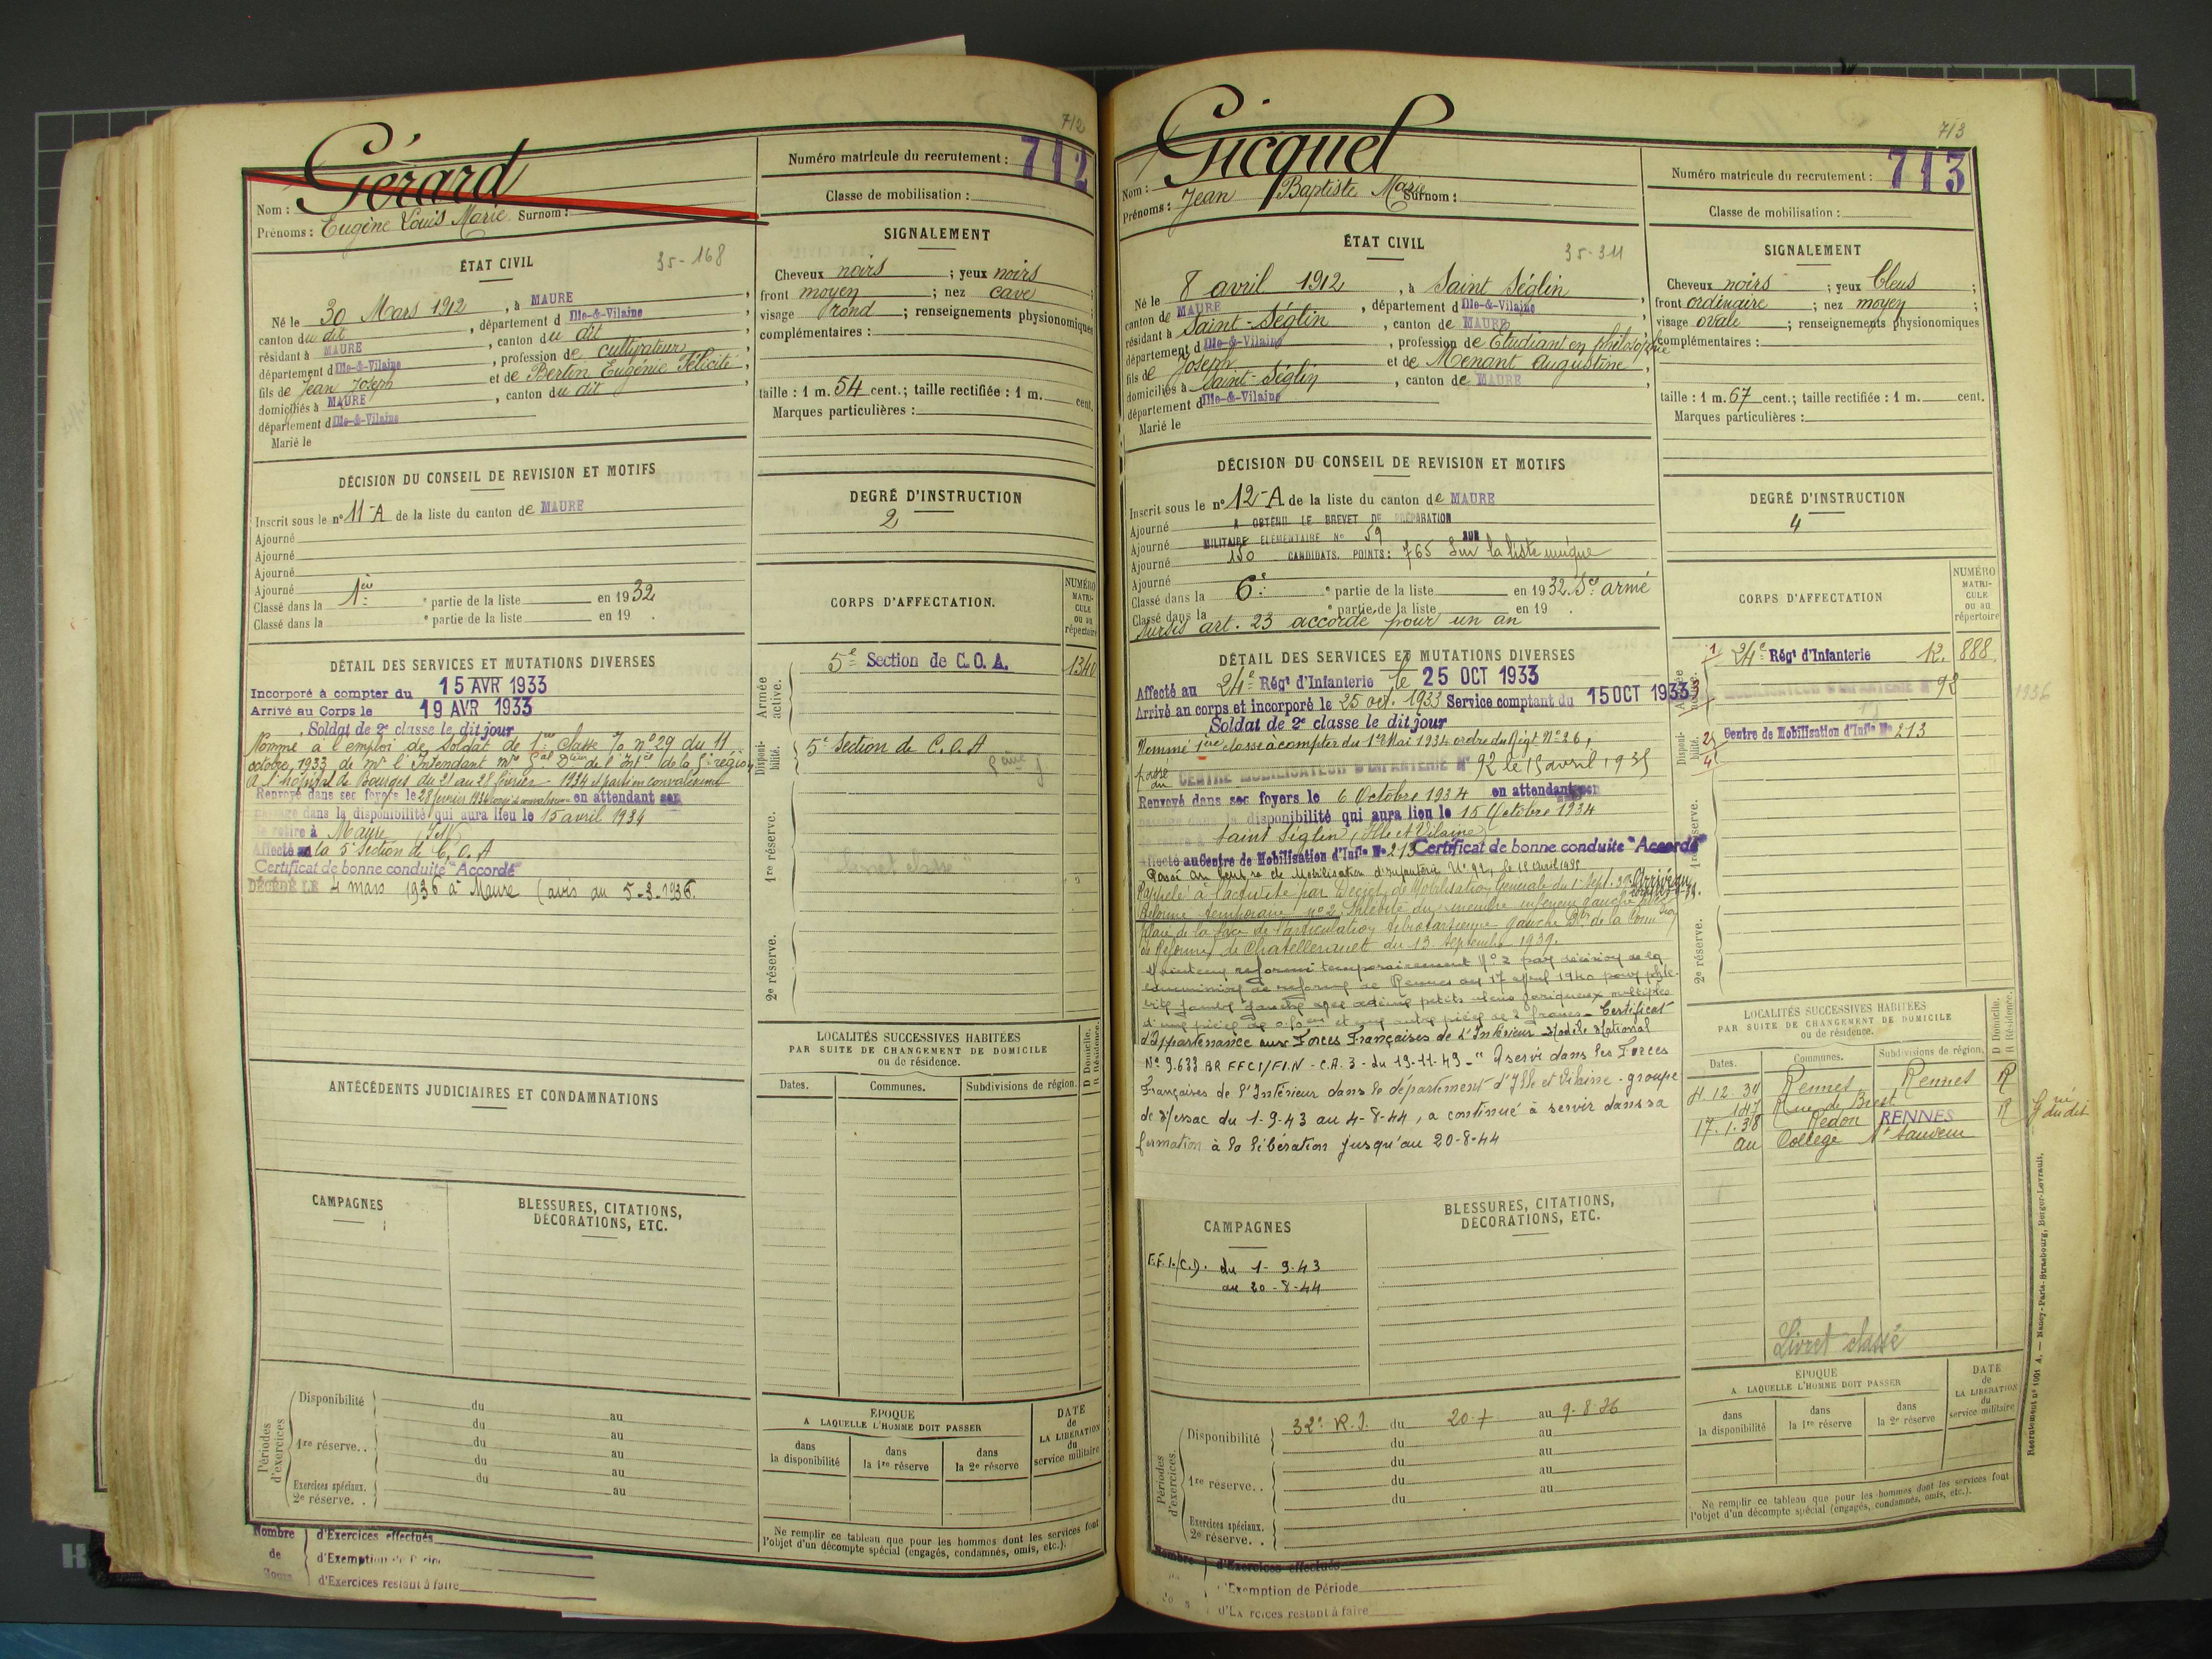 712
Numéro matricule du recrutement : 712
Gérard
Nom :
Prénoms : Eugène Louis Marie Surnom :
Classe de mobilisation :
ÉTAT CIVIL
35-168
Né le 30 Mars 1912, à MAURE,
canton du dit, département d Ille-&-Vilaine,
résidant à MAURE, canton du dit,
département d Ille-&-Vilaine, profession de cultivateur,
fils de Jean Joseph et de Bertin Eugénie Félicité,
domiciliés à MAURE, canton du dit,
département d Ille-&-Vilaine
Marié le
SIGNALEMENT
Cheveux noirs ; yeux noirs
front moyen ; nez cave ;
visage rond ; renseignements physionomiques
complémentaires :
taille : 1 m. 54 cent.; taille rectifiée : 1 m. cent.
Marques particulières :
DÉCISION DU CONSEIL DE REVISION ET MOTIFS
Inscrit sous le n° 11-A de la liste du canton de MAURE
Ajourné
Ajourné
Ajourné
Ajourné
Classé dans la 1ère partie de la liste en 1932
Classé dans la e partie de la liste en 19 .
DEGRÉ D'INSTRUCTION
2
CORPS D'AFFECTATION.
NUMÉRO MATRICULE ou au répertoire
Armée active.
5e Section de C.O.A. 1340
Disponibilité.
5e Section de C.O.A
1re réserve.
2e réserve.
DÉTAIL DES SERVICES ET MUTATIONS DIVERSES
Incorporé à compter du 15 AVR 1933
Arrivé au Corps le 19 AVR 1933
Soldat de 2e classe le dit jour
Nommé à l'emploi de Soldat de 1ère classe % n° 29 du 11
octobre 1933 de mr l'Intendant
A l'hôpital de Bourges du 21 au 28 février 1934 et parti en convalescence
Renvoyé dans ses foyers le 28 février 1934 en attendant son
passage dans la disponibilité qui aura lieu le 15 avril 1934
Se retire à Maure
Affecté à la 5e Section de C.O.A
Certificat de bonne conduite "Accordé"
DÉCÉDÉ LE 4 mars 1936 à Maure (avis du 5-3-1936.
ANTÉCÉDENTS JUDICIAIRES ET CONDAMNATIONS
LOCALITÉS SUCCESSIVES HABITÉES
PAR SUITE DE CHANGEMENT DE DOMICILE
ou de résidence.
D Domicile.
R Résidence.
Dates. Communes. Subdivisions de région.
CAMPAGNES
BLESSURES, CITATIONS,
DÉCORATIONS, ETC.
Périodes d'exercices
Disponibilité du au
du au
1re réserve.. du au
du au
Exercices spéciaux. du au
2e réserve. .
ÉPOQUE
A LAQUELLE L'HOMME DOIT PASSER
dans la disponibilité
dans la 1re réserve
dans la 2e réserve
DATE de LA LIBÉRATION du service militaire
Ne remplir ce tableau que pour les hommes dont les services font
l'objet d'un décompte spécial (engagés, condamnés, omis, etc.).
Nombre de Jours
d'Exercices effectués
d'Exemption de Période
d'Exercices restant à faire
713
Numéro matricule du recrutement : 713
Gicquel
Nom :
Prénoms : Jean Baptiste Marie Surnom :
Classe de mobilisation :
ÉTAT CIVIL
35-311
Né le 8 avril 1912, à Saint Séglin,
canton de MAURE, département d Ille-&-Vilaine,
résidant à Saint-Séglin, canton de MAURE,
département d Ille-&-Vilaine, profession de Etudiant en philosophie
fils de Joseph et de Menant Augustine,
domiciliés à Saint-Séglin, canton de MAURE,
département d Ille-&-Vilaine
Marié le
SIGNALEMENT
Cheveux noirs ; yeux bleus ;
front ordinaire ; nez moyen ;
visage ovale ; renseignements physionomiques
complémentaires :
taille : 1 m. 67 cent.; taille rectifiée : 1 m. cent.
Marques particulières :
DÉCISION DU CONSEIL DE REVISION ET MOTIFS
Inscrit sous le n° 12-A de la liste du canton de MAURE
Ajourné A OBTENU LE BREVET DE PRÉPARATION
Ajourné MILITAIRE ELEMENTAIRE No 59 SUR
Ajourné 150 CANDIDATS. POINTS: 765 Sur la liste unique
Ajourné
Classé dans la 6e partie de la liste en 1932 Sce armé
Classé dans la e partie de la liste en 19 .
Sursis art. 23 accordé pour un an
DEGRÉ D'INSTRUCTION
4
CORPS D'AFFECTATION
NUMÉRO MATRICULE ou au répertoire
Armée active.
24e Régt d'Infanterie 12. 888
CENTRE MOBILISATEUR D'INFANTERIE N° 92
1936
Disponibilité.
Centre de Mobilisation d'Infie No 213
1re réserve.
2e réserve.
DÉTAIL DES SERVICES ET MUTATIONS DIVERSES
Affecté au 24e Régt d'Infanterie le 25 OCT 1933
Arrivé au corps et incorporé le 25 oct. 1933 Service comptant du 15 OCT 1933
Soldat de 2e classe le dit jour
Nommé 1ère classe à compter du 1er Mai 1934 ordre du Régt N° 26,
passé au CENTRE MOBILISATEUR D'INFANTERIE N° 92 le 15 avril 1935
Renvoyé dans ses foyers le 6 Octobre 1934 en attendant son
passage dans la disponibilité qui aura lieu le 15 Octobre 1934
Se retire à Saint Séglin (Ille et Vilaine)
Affecté au Centre de Mobilisation d'Infie No 213 Certificat de bonne conduite "Accordé"
Passé au Centre de Mobilisation d'Infanterie N° 92, le 15 Avril 1935
Rappelé à l'activité par Décret de Mobilisation Générale du 1er Sept. 39. Arrivé au
Réformé temporaire n° 2. Phlébite du membre inférieur gauche
Plaie de la face de l'articulation tibiotarsienne gauche Don de la Comm on
de Réforme de Chatellerault du 13 septembre 1939.
Maintenu réformé temporairement N° 2 par décision de la
commission de réforme de Rennes du 17 avril 1940 pour phlé-
bite jambe gauche avec œdème petits ulcus variqueux multiples
d'une pièce de 0.50 et une autre pièce de 2 francs - Certificat
d'Appartenance aux Forces Françaises de l'Intérieur Modèle National
N° 9.633 BR FFCI/FIN - C.A. 3 - du 19-11-49 - "A servi dans les Forces
Françaises de l'Intérieur dans le département d'Ille et Vilaine - groupe
de Messac du 1-9-43 au 4-8-44, a continué à servir dans sa
formation à la libération jusqu'au 20-8-44
LOCALITÉS SUCCESSIVES HABITÉES
PAR SUITE DE CHANGEMENT DE DOMICILE
ou de résidence.
D Domicile.
R Résidence.
Dates. Communes. Subdivisions de région.
4.12.34 Rennes Rennes R
147 Rue de Brest
17.1.38 Redon RENNES R
au Collège St Sauveur
CAMPAGNES
F.F.I./C.D. du 1-9-43
au 20-8-44
BLESSURES, CITATIONS,
DÉCORATIONS, ETC.
Livret classé
Périodes d'exercices.
Disponibilité 32e R.I. du 20-7 au 9-8-36
du au
du au
1re réserve.. du au
du au
Exercices spéciaux.
2e réserve. .
ÉPOQUE
A LAQUELLE L'HOMME DOIT PASSER
dans la disponibilité
dans la 1re réserve
dans la 2e réserve
DATE de LA LIBÉRATION du service militaire
Ne remplir ce tableau que pour les hommes dont les services font
l'objet d'un décompte spécial (engagés, condamnés, omis, etc.).
Nombre
d'Exercices effectués
d'Exemption de Période
d'Exercices restant à faire
Recrutement n° 1001 A. — Nancy-Paris-Strasbourg, Berger-Levrault.